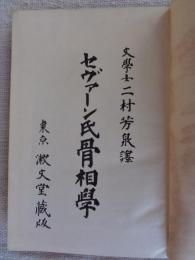 文學士二村芳泉譯
セヴァーン氏骨相學
東京 漱文堂藏版